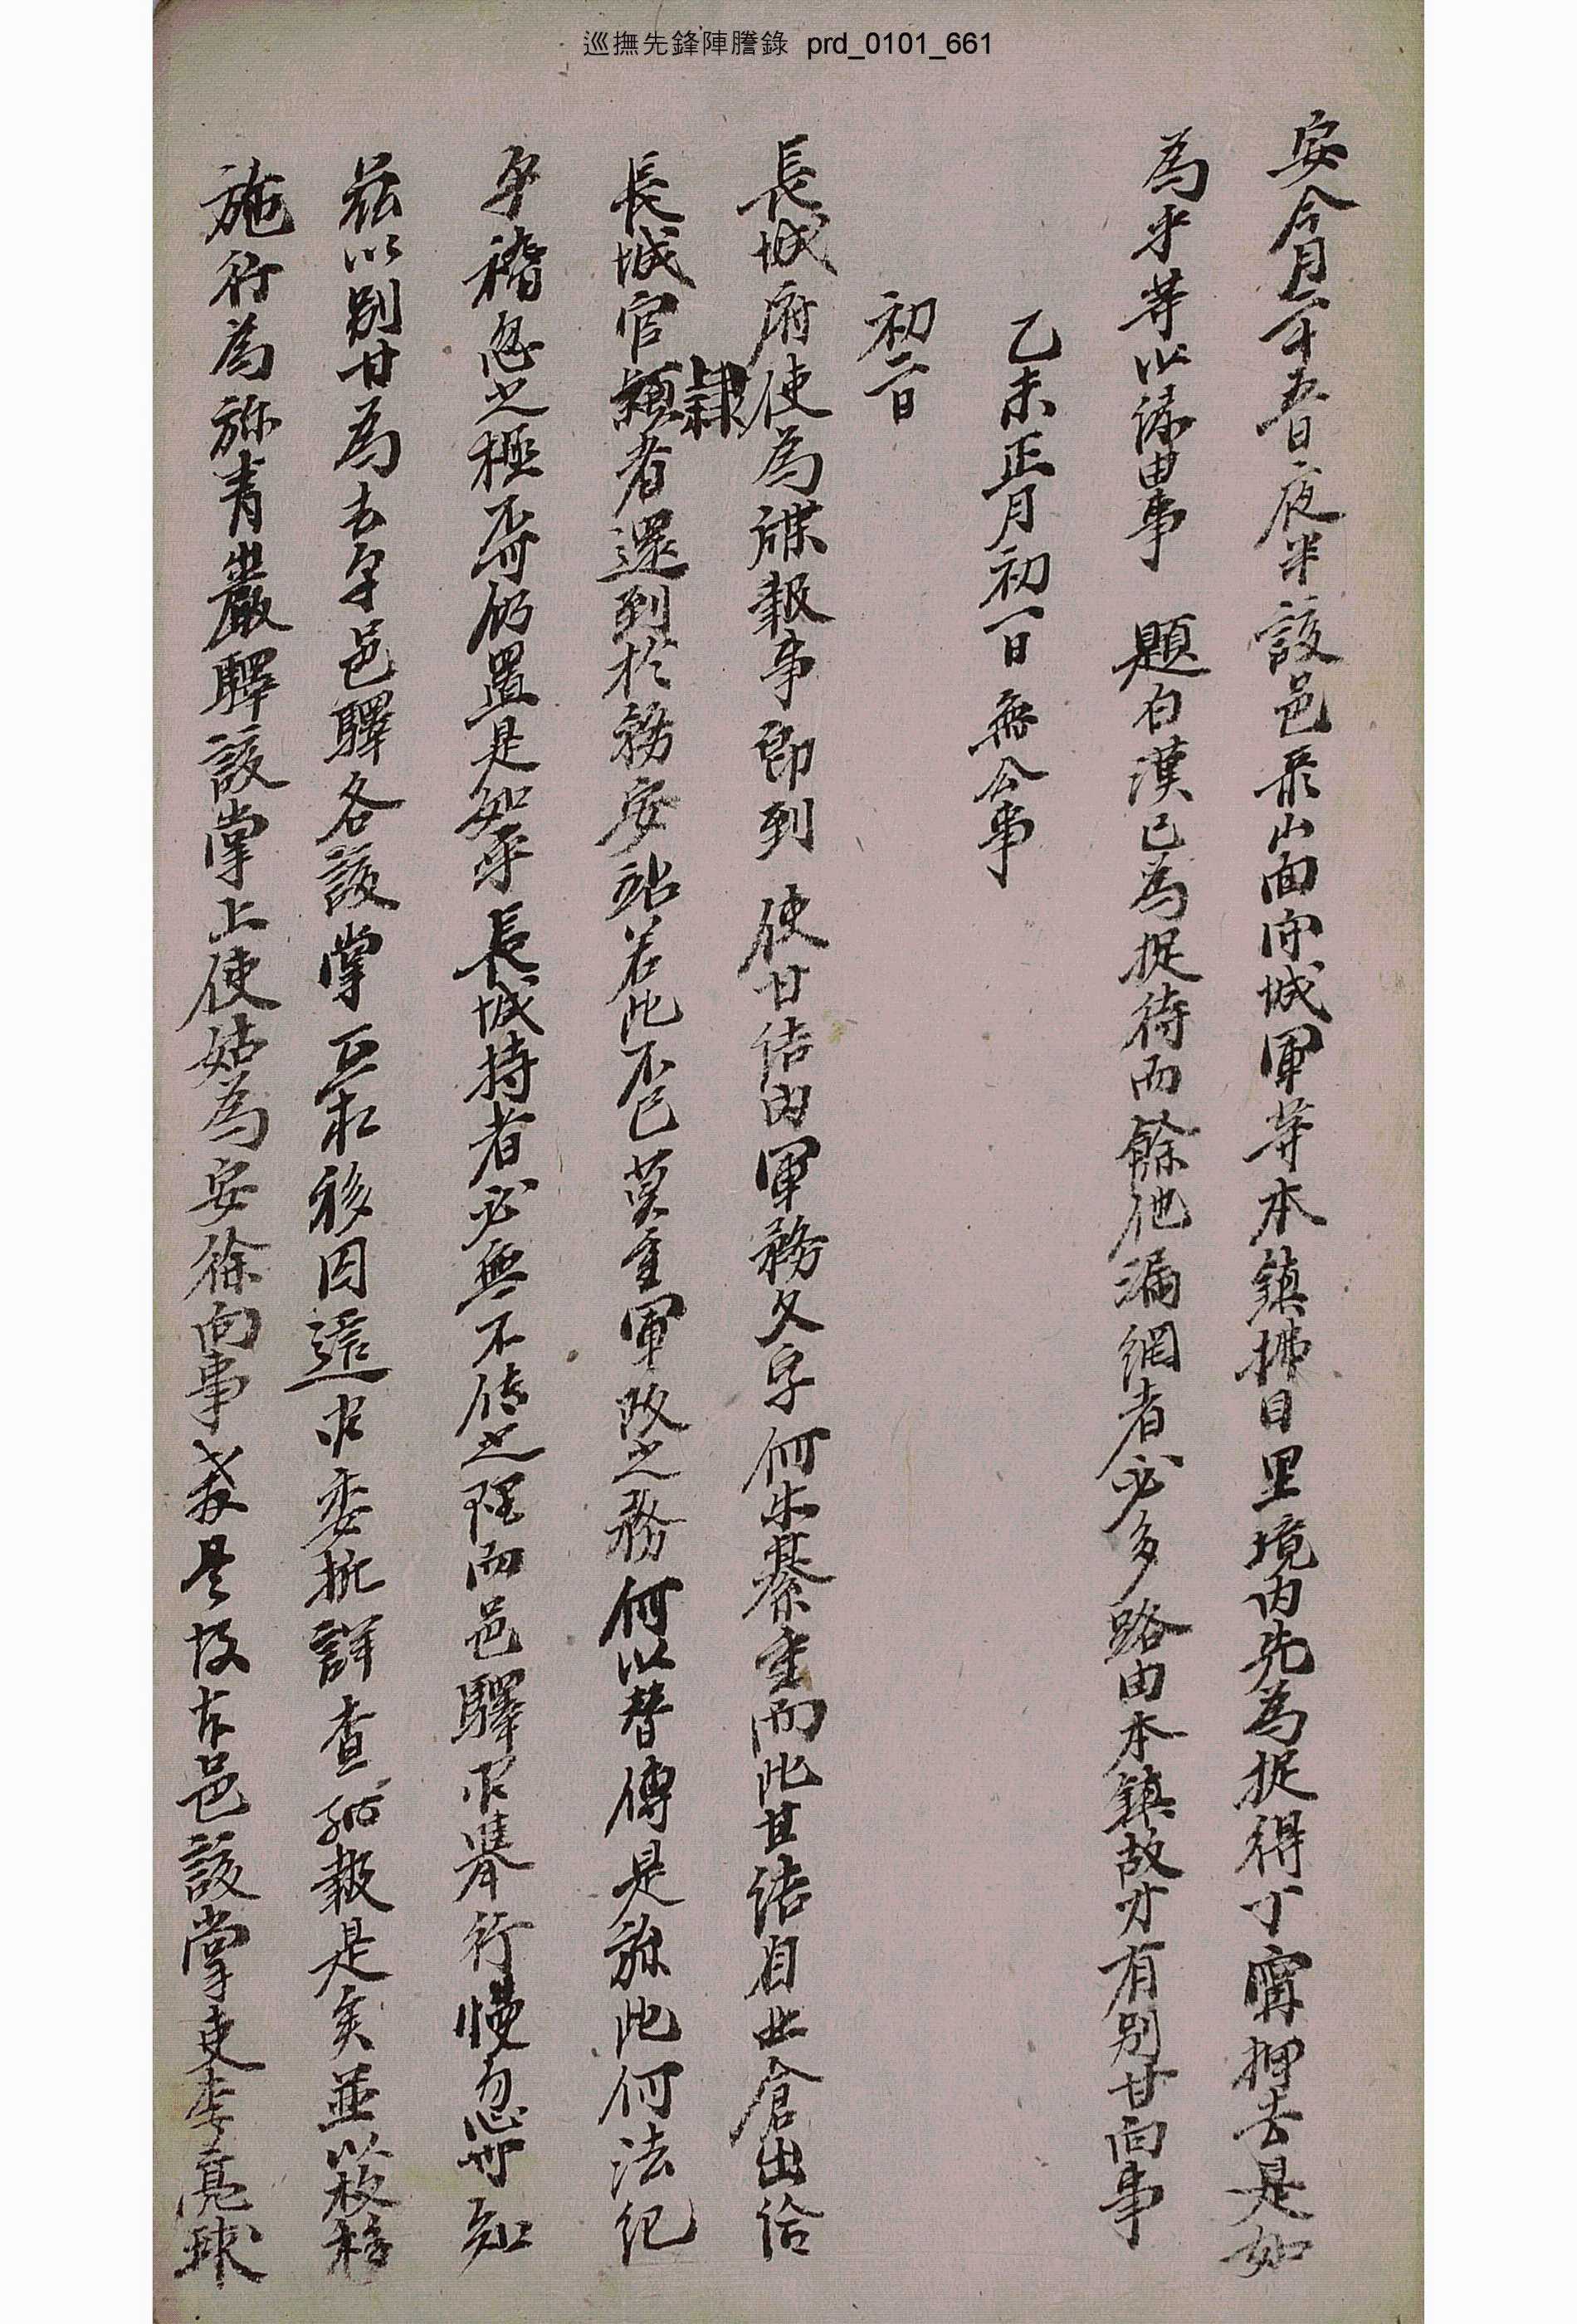 巡撫先鋒陣謄錄 prd_0101_661
安今月二十五日夜半該邑森山面守城軍等本鎭拂日里境內先為捉得丁寧押去是如
為乎等以緣由事 題白漢已為捉待而餘他漏網者必多路由本鎭故才有別甘向事
乙未正月初一日 無公事
初二日
長城府使為牒報事卽到 使甘結內軍務文字何等綦重而此甘結自社倉出給
長城官隸者還到於務安站若此不已莫重軍政之務何以替傳是旀此何法紀
乎稽忽之極不可仍置是如乎長城持者必無不傳之理而邑驛不擧行慢忽可知
茲以別甘為去乎邑驛各該掌互相移因這這委折詳查馳報是矣並以枚移
施行為旀靑巖驛該掌上使姑為安徐向事敎是故本邑該掌吏李亮球